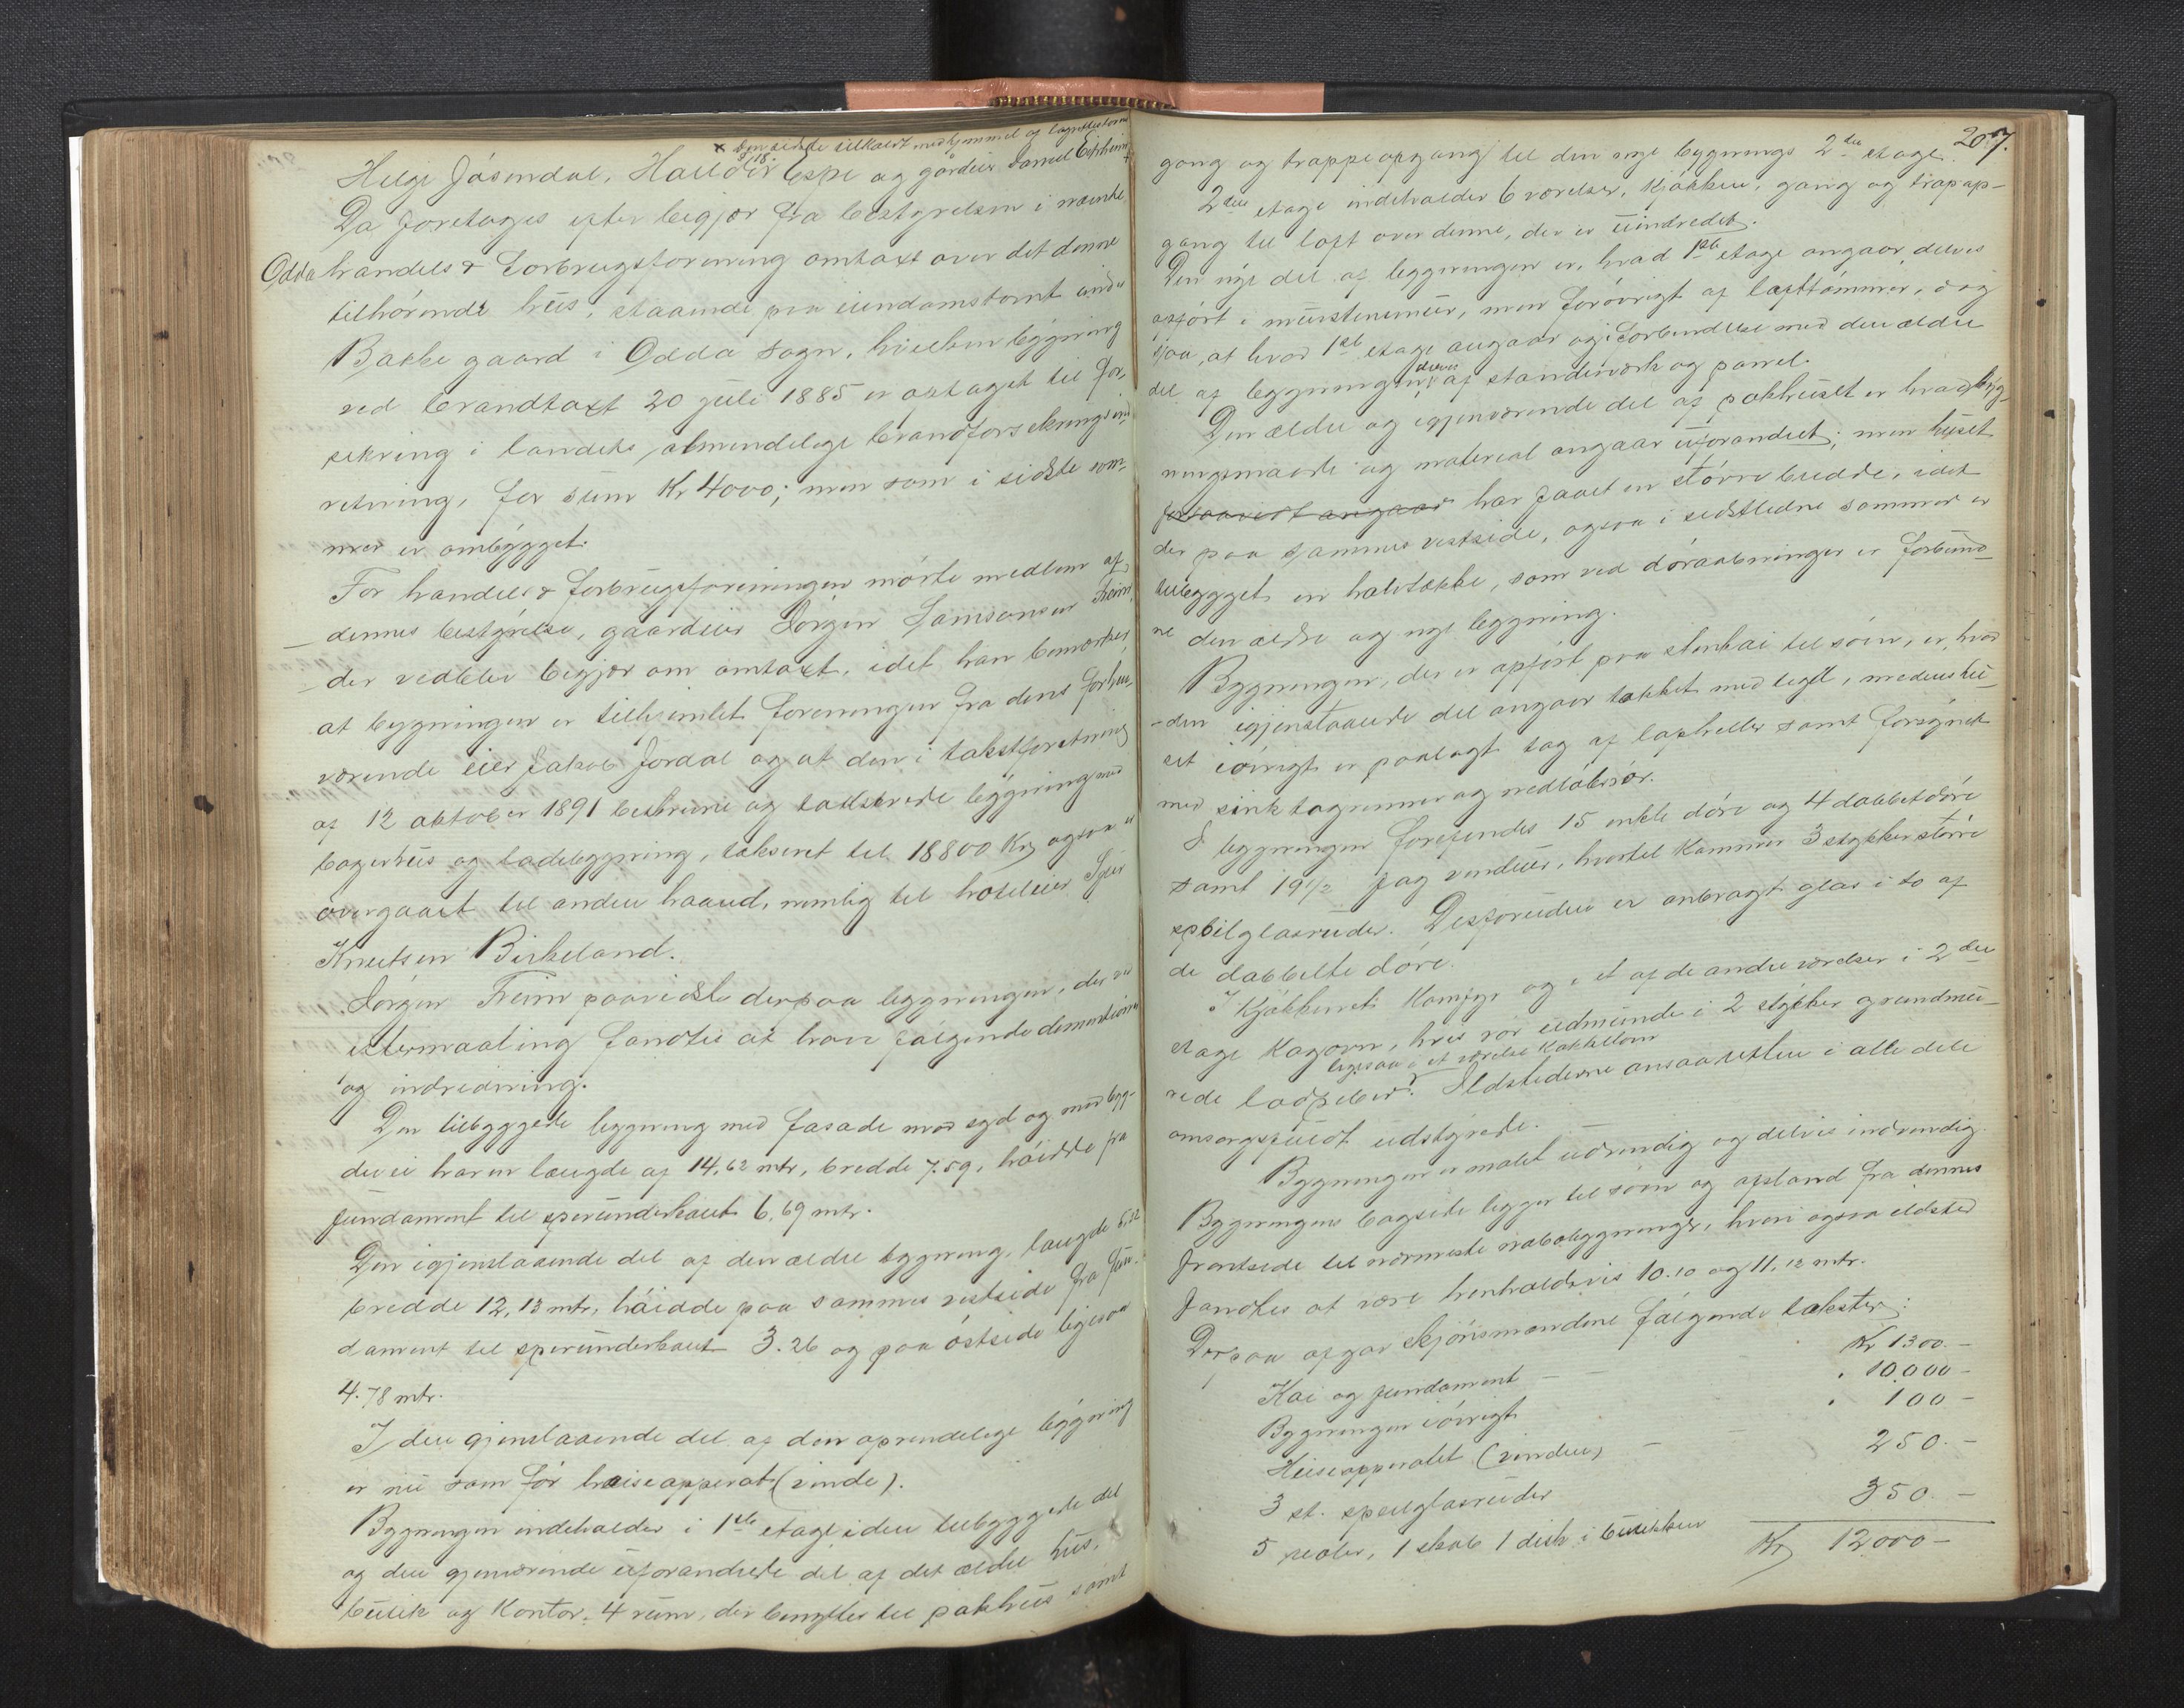 x Den sidste tilkaldt med hjemmel af lagrettelovens
§ 18.
Helge Jåsendal, Halldor Espe og gårdeier Samuel Eitrheim x
Da foretoges efter begjær fra bestyrelsen i nævnte
Odda handels & Forbrugsforening omtaxt over det denne
tilhörende hus, staaende paa eiendomstomt under
Bakke gaard i Odda sogn, hvilken bygning
ved brandtaxt 20 juli 1885 er optaget til for-
sekring i landets almindelige brandforsekringsind-
retning, for sum Kr 4000; men som i sidste som-
mer er ombygget.
For handels & forbrugsforeningen mödte medlem af
dennes bestyrelse, gaardeier Jörgen Samsonsen Freim,
der vedblev begjær om omtaxt, idet han bemærker,
at bygningen er tilhjemlet foreningen fra dens forhen-
værende eier Jakob Jordal og at den i takstforretning
af 12 oktober 1891 beskrevne og takserede bygning med
bagerhus og ladebygning, takseret til 18800 Kr, ogsaa er
overgaaet til anden haand, nemlig til hoteleier Sjur
Knutsen Birkeland.
Jörgen Freim paaviste derpaa bygningen, der ved
eftermaaling fandtes at have fölgende dimentioner
og indredning.
Den tilbyggede bygning med fasade mod syd og mod byg-
devei har en længde af 14,62 mtr, bredde 7.59, höidde fra
fundament til sperunderkant 6,69 mtr.
Den igjenstaaende del af den ældre bygning, længde 5,32
bredde 12,13 mtr, höidde paa sammes vestside fra fun-
dament til sperunderkant 3.26 og paa östside ligesaa
4.78 mtr.
I den gjenstaaende del af den oprindelige bygning
er nu som för heiseapperat (vinde).
Bygningen indeholder i 1ste etage i den tilbyggede del
og den gjenværende uforandrede del af det ældre hus,
butik og Kontor, 4 rum, der benyttes til pakhus samt
207.
gang og trappeopgang til den nye bygnings 2den etage.
2den etage indeholder 6 værelser, kjökken, gang og trapop-
gang til loft over denne, der er uindredet.
Den nye del af bygningen er, hvad 1ste etage angaar delvis
opfört i murstensmur, men forövrigt af lafttömmer, dog
saa, at hvad 1ste etage angaar og i Forbindelse med den ældre
del af bygningen, delvis af standværk og panel.
Den ældre og igjenværende del af pakhuset er hvad byg-
ningsmaade og material angaar uforandret; men huset
forsaavidt angaar har faaet en större bredde, idet
der paa sammes vestside, ogsaa i sidstledne sommer er
tilbygget en halvtække, som ved döraabninger er forbund-
ne den ældre og nye bygning.
Bygningen, der er opfört paa stenkai til söen, er, hvad
den igjenstaaende del angaar tækket med tegl, medens hu-
set iövrigt er paalagt tag af lapheller samt forsynet
med sink tagrenner og nedlöbsrör.
I bygningen forefindes 15 enkle döre og 4 dobbeltdöre
samt 19 1/2 fag vinduer, hvortil kommer 3 stykker större
speilglasruder. Desforuden er anbragt glas i to af
de dobbelte döre.
I Kjökkenet Komfyr og i et af de andre værelser i 2den
etage Kogovn, hvis rör udmunde i 2 stykker grundmu-
rede ladpiber, ligesaa i et værelse kakkelovn. Ildstederne ansaaes ellers i alle dele
omsorgsfuldt udstyrede.
Bygningen er malet udvendig og delvis indvendig.
Bygningens bagside ligger til söen og afstand fra dennes
frontside til nærmeste nabobygninger, hvori ogsaa ildsted
fandtes at være henholdsvis 10.10 og 11,12 mtr.
Derpaa afgav skjönsmændene fölgende takster:
Kai og fundament - - Kr 1300.-
Bygningen iövrigt " 10.000-
Heiseapperatet (vinden) - - " 100-
3 st. speilglasruder 250.-
5 reoler, 1 skab 1 disk i butikken 350.-
Kr 12000-